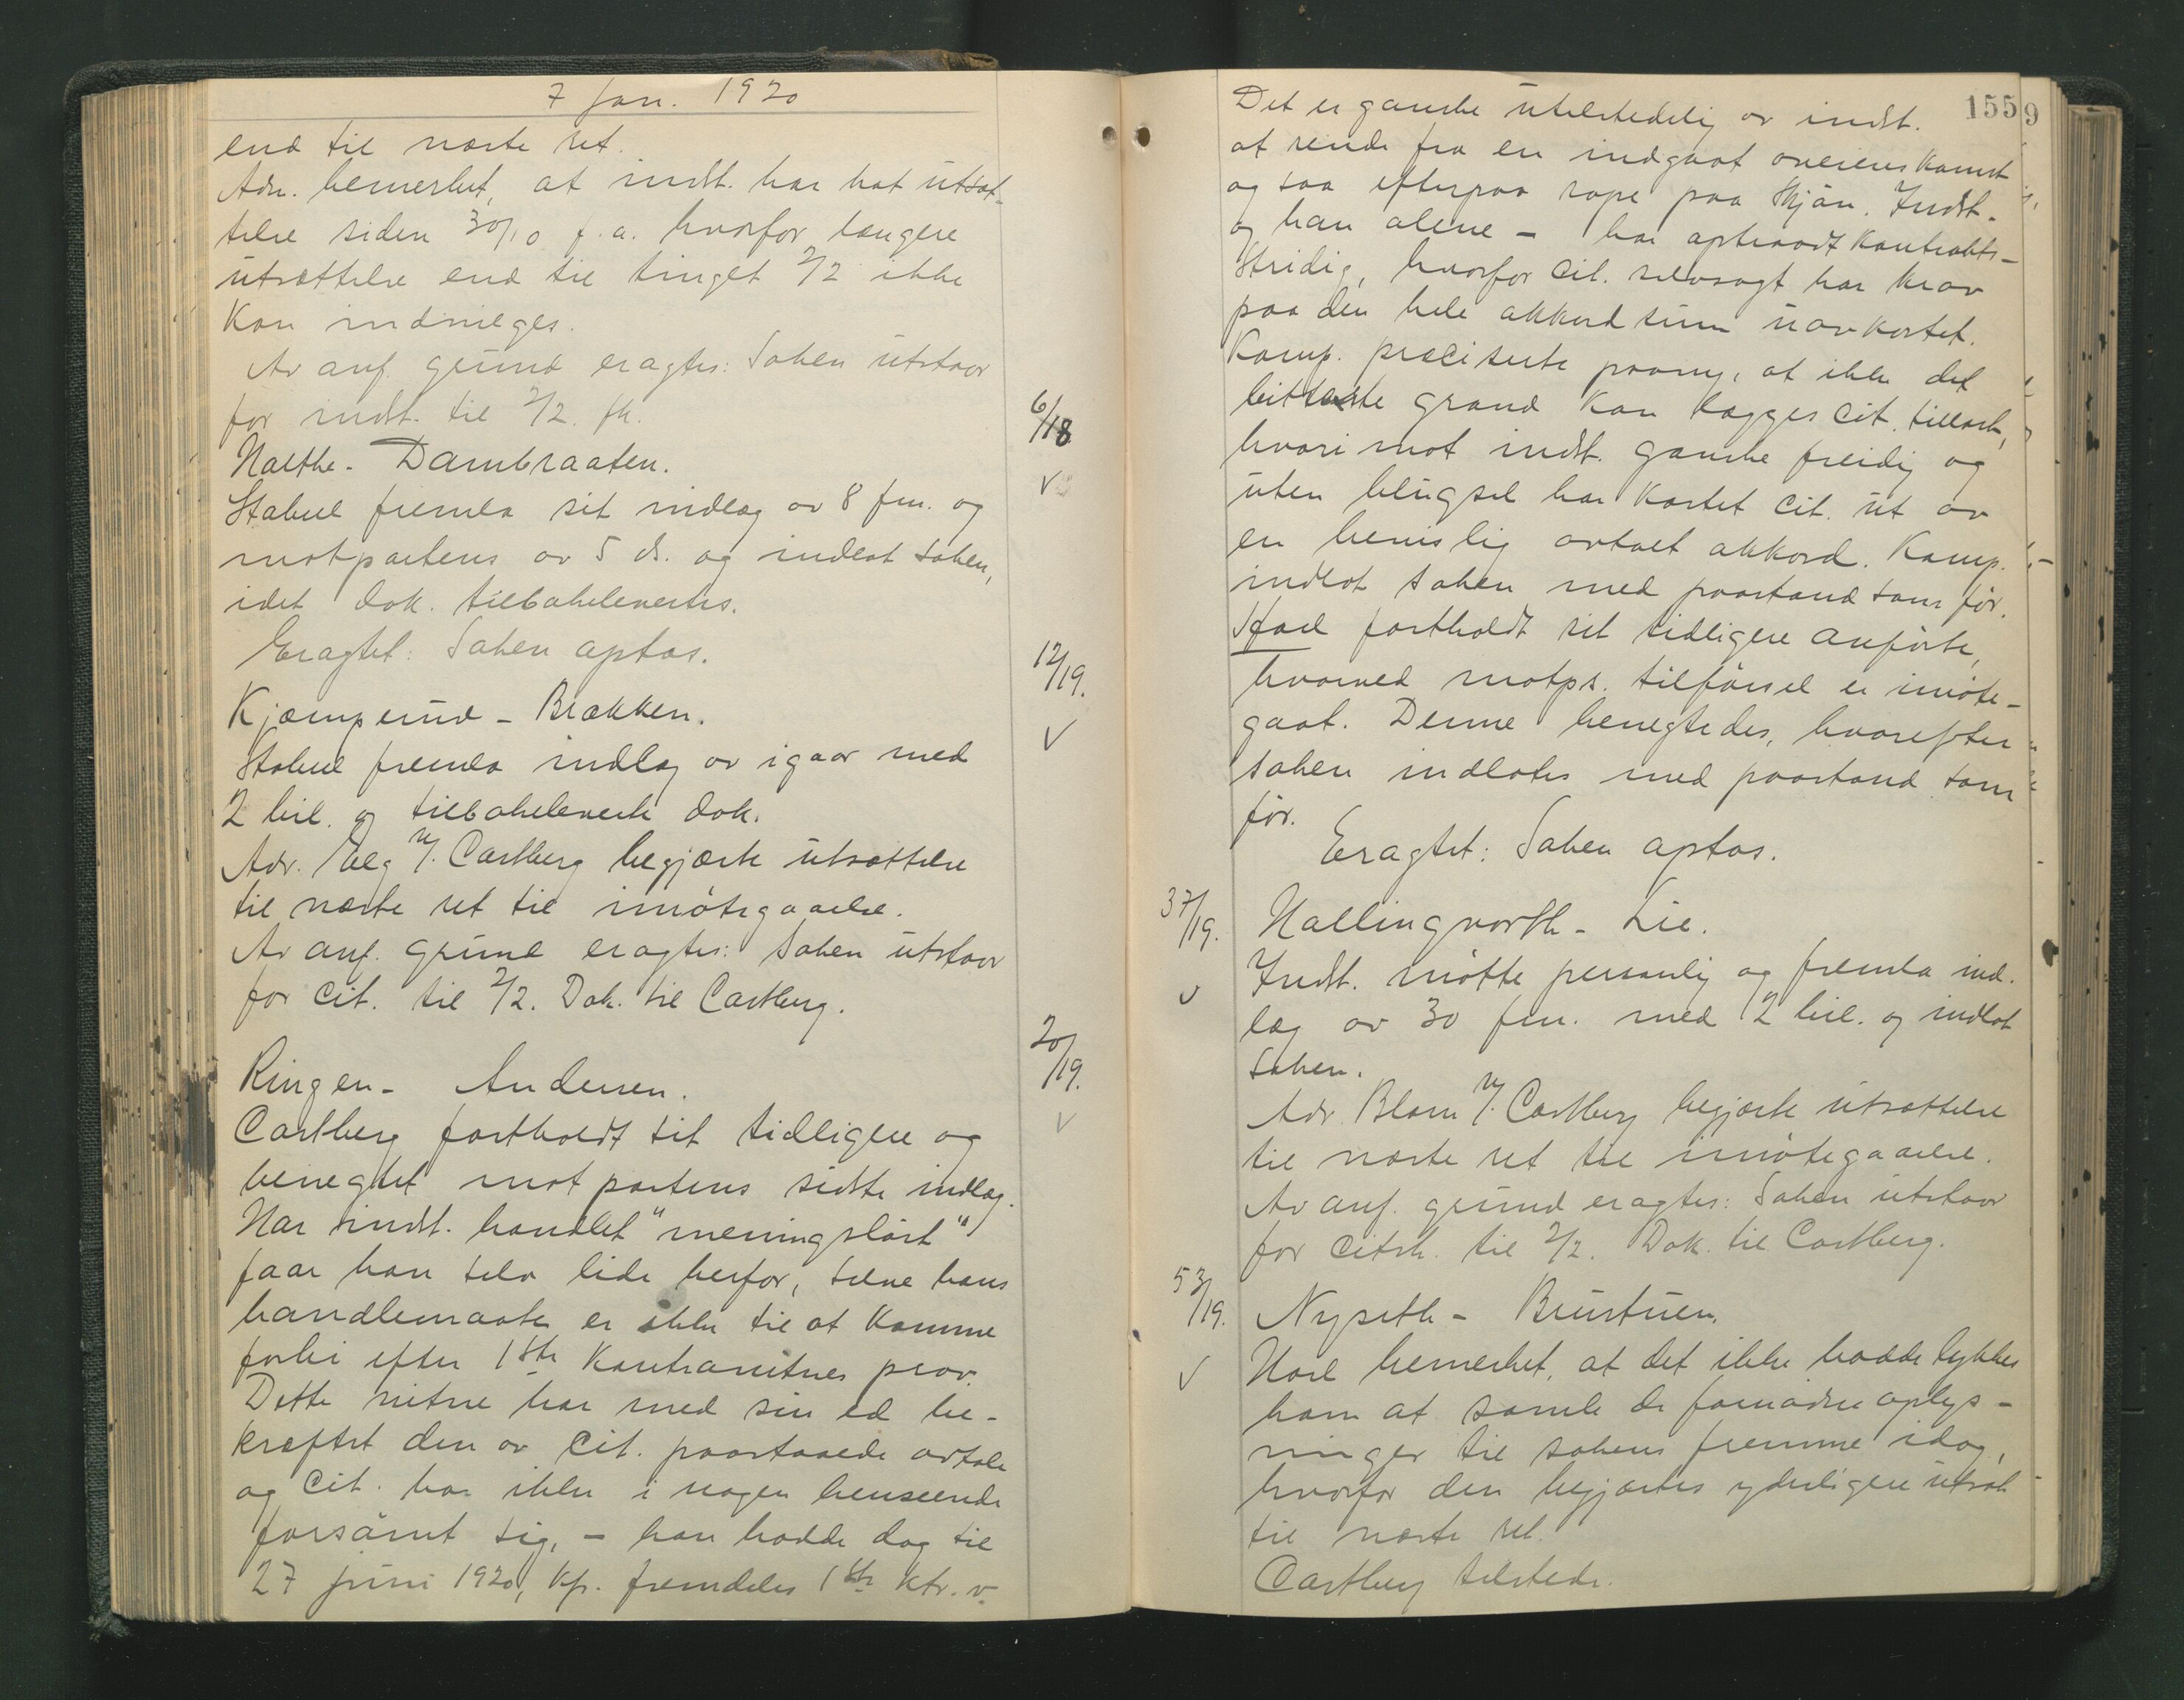 7 Jan. 1920
end til næste ret.
Adv. bemerket, at indst. har hat utsæt-
telse siden 30/10 f.a. hvorfor længere
utsættelse end til tinget 2/2 ikke
kan indrømmes.
Av anf. grund eragtes: Saken utstaar
for indst. til 2/2. fk.
6/18
Dambraaten.
Stabel fremla sit indlæg av 8 fm. og
motpartens av 5 ds. og indlot saken,
idet dok. tilbakelevertes.
Eragtet: Saken optas.
12/19.
Kjæmperud - Brækken.
Stabel fremla indlæg av igaar med
2 bil. og tilbakeleverte dok.
Adv. Carlberg begjærte utsættelse
til næste ret til imøtegaaelse.
Av anf. grund eragtes: Saken utstaar
for cit. til 2/2. Dok. til Castberg.
20/19.
Ringen - Andersen.
Castberg fortholdt sit tidligere og
benegtet motpartens sidste indlæg.
Har indst. handlet "meningsløst"
faar han selv lide herfor, selve hans
handlemaate er ikke til at komme
forbi efter 1ste kontravitnes prov.
Dette vitne har med sin ed be-
kræftet den av cit. paastaaede avtale
og cit. har ikke i nogen henseende
forsømt sig, - han hadde dog til
27 juni 1920, kfr. fremdeles 1ste ktr. v.
1559
Det er ganske utilstedelig av indst.
at rende fra en indgaat overenskomst
og saa efterpaa rope paa skjøn. Indst.
og han alene - har optraadt kontrakts-
stridig, hvorfor cit. selvsagt har krav
paa den hele akkordsum uavkortet.
Komp. præciserte paany, at ikke det
bitterste grand kan lægges cit. tillast,
hvorimot indst. ganske freidig og
uten blugsel har kastet cit. ut av
en bevislig avtalt akkord. Komp.
indlot saken med paastand som før.
fortholdt sit tidligere anførte,
hvorved motps. tilførsel er imøte-
gaat. Denne benegtedes, hvorefter
saken indlotes med paastand som
før.
Eragtet: Saken optas.
37/19.
Hallingvorth - Lie.
Indst. møtte personlig og fremla ind-
læg av 30 fm. med 2 bil. og indlot
saken.
Adv. Blom v/. Castberg begjærte utsættelse
til næste ret til imøtegaaelse.
Av anf. grund eragtes: Saken utstaar
for citsk. til 2/2. Dok. til Castberg.
53/19.
Nyseth - Brustuen.
bemerket, at det ikke hadde lykkes
ham at samle de fornødne oplys-
ninger til sakens fremme idag,
hvorfor den begjærtes yderligere utsat
til næste ret.
Castberg tilstede.